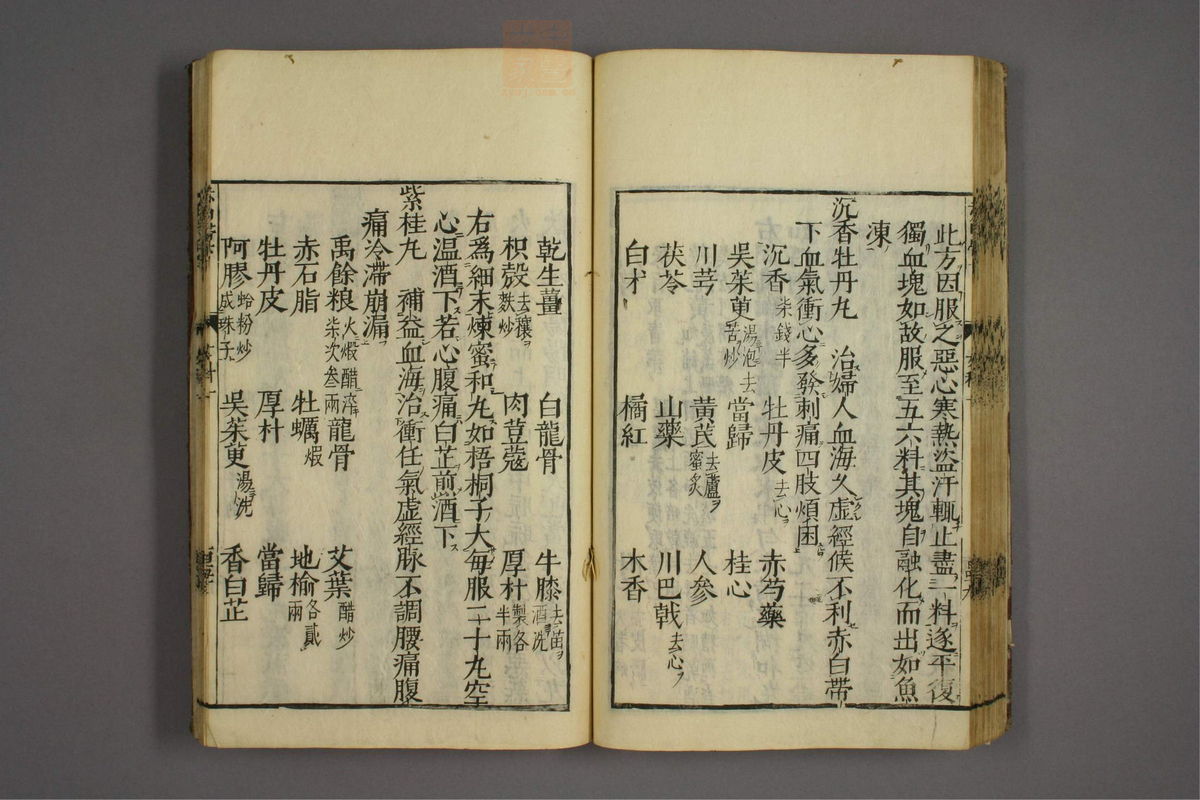 此方因服之惡心寒熱盜汗輒止盡一料遂平復
獨血塊如故服至五六料其塊自融化而出如魚
凍
沉香牡丹丸 治婦人血海久虛經候不利赤白帶
下血氣衝心多發刺痛四肢煩困
沉香柒錢半 牡丹皮去心 赤芍藥
吳茱萸湯泡去苦炒 當歸 桂心
川芎 黃芪去蘆蜜炙 人參
茯苓 山藥 川巴戟去心
白朮 橘紅 木香
乾生薑 白龍骨 牛膝去苗酒洗
枳殼去穰麩炒 肉荳蔻 厚朴製各半兩
右爲細末煉蜜和丸如梧桐子大每服二十丸空
心溫酒下若心腹痛白芷煎酒下
紫桂丸 補益血海治衝任氣虛經脉不調腰痛腹
痛冷滯崩漏
禹餘粮火煅醋淬柒次叁兩 龍骨 艾葉醋炒
赤石脂 牡蠣煅 地榆各貳兩
牡丹皮 厚朴 當歸
阿膠蛤粉炒成珠子 吳茱萸湯洗 香白芷